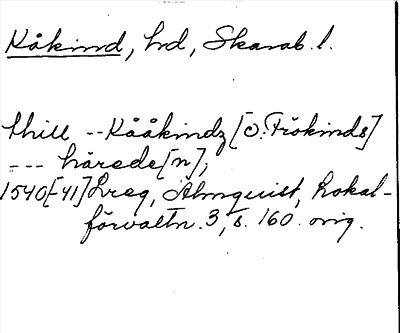 Kåkind, hd, Skarab. l.
thill -- Kååkindz [o. Frökinds]
--- härede[n],
1540[-41] Lreg, Almquist, Lokal-
förvaltn. 3, s. 160. orig.